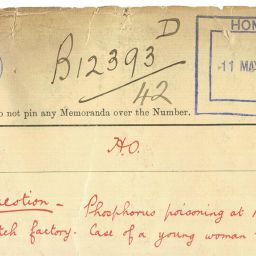 B12393 D
42
HOM
11 MAY
o not pin any Memoranda over the Number.
H.O.
uestion - Phosphorus poisoning at
tch factory. Case of a young woman